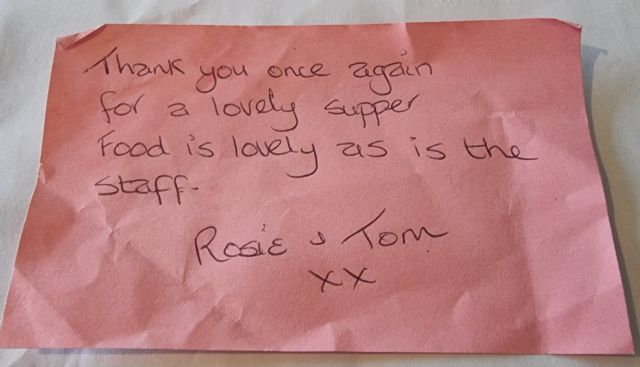 Thank you once again
for a lovely supper
Food is lovely as is the
staff.
Rosie & Tom
xx